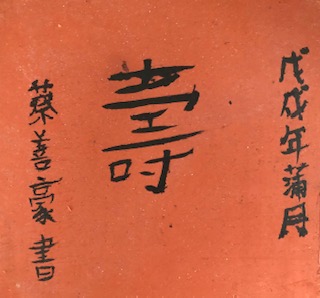 戊戌年蒲月
壽
蔡善豪書